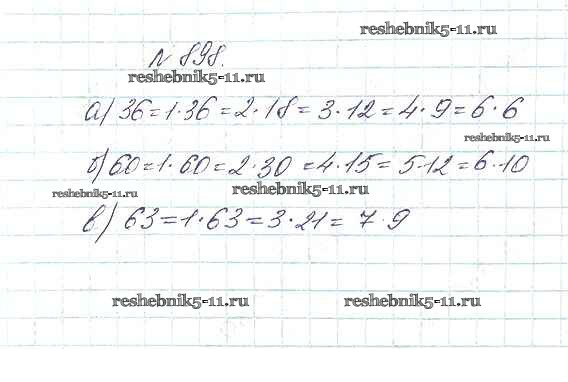 reshebnik5-11.ru
№ 898.
reshebnik5-11.ru
а) 36=1·36=2·18=3·12=4·9=6·6
reshebnik5-11.ru
б) 60=1·60=2·30=4·15=5·12=6·10
reshebnik5-11.ru reshebnik5-11.ru
в) 63=1·63=3·21=7·9
reshebnik5-11.ru reshebnik5-11.ru